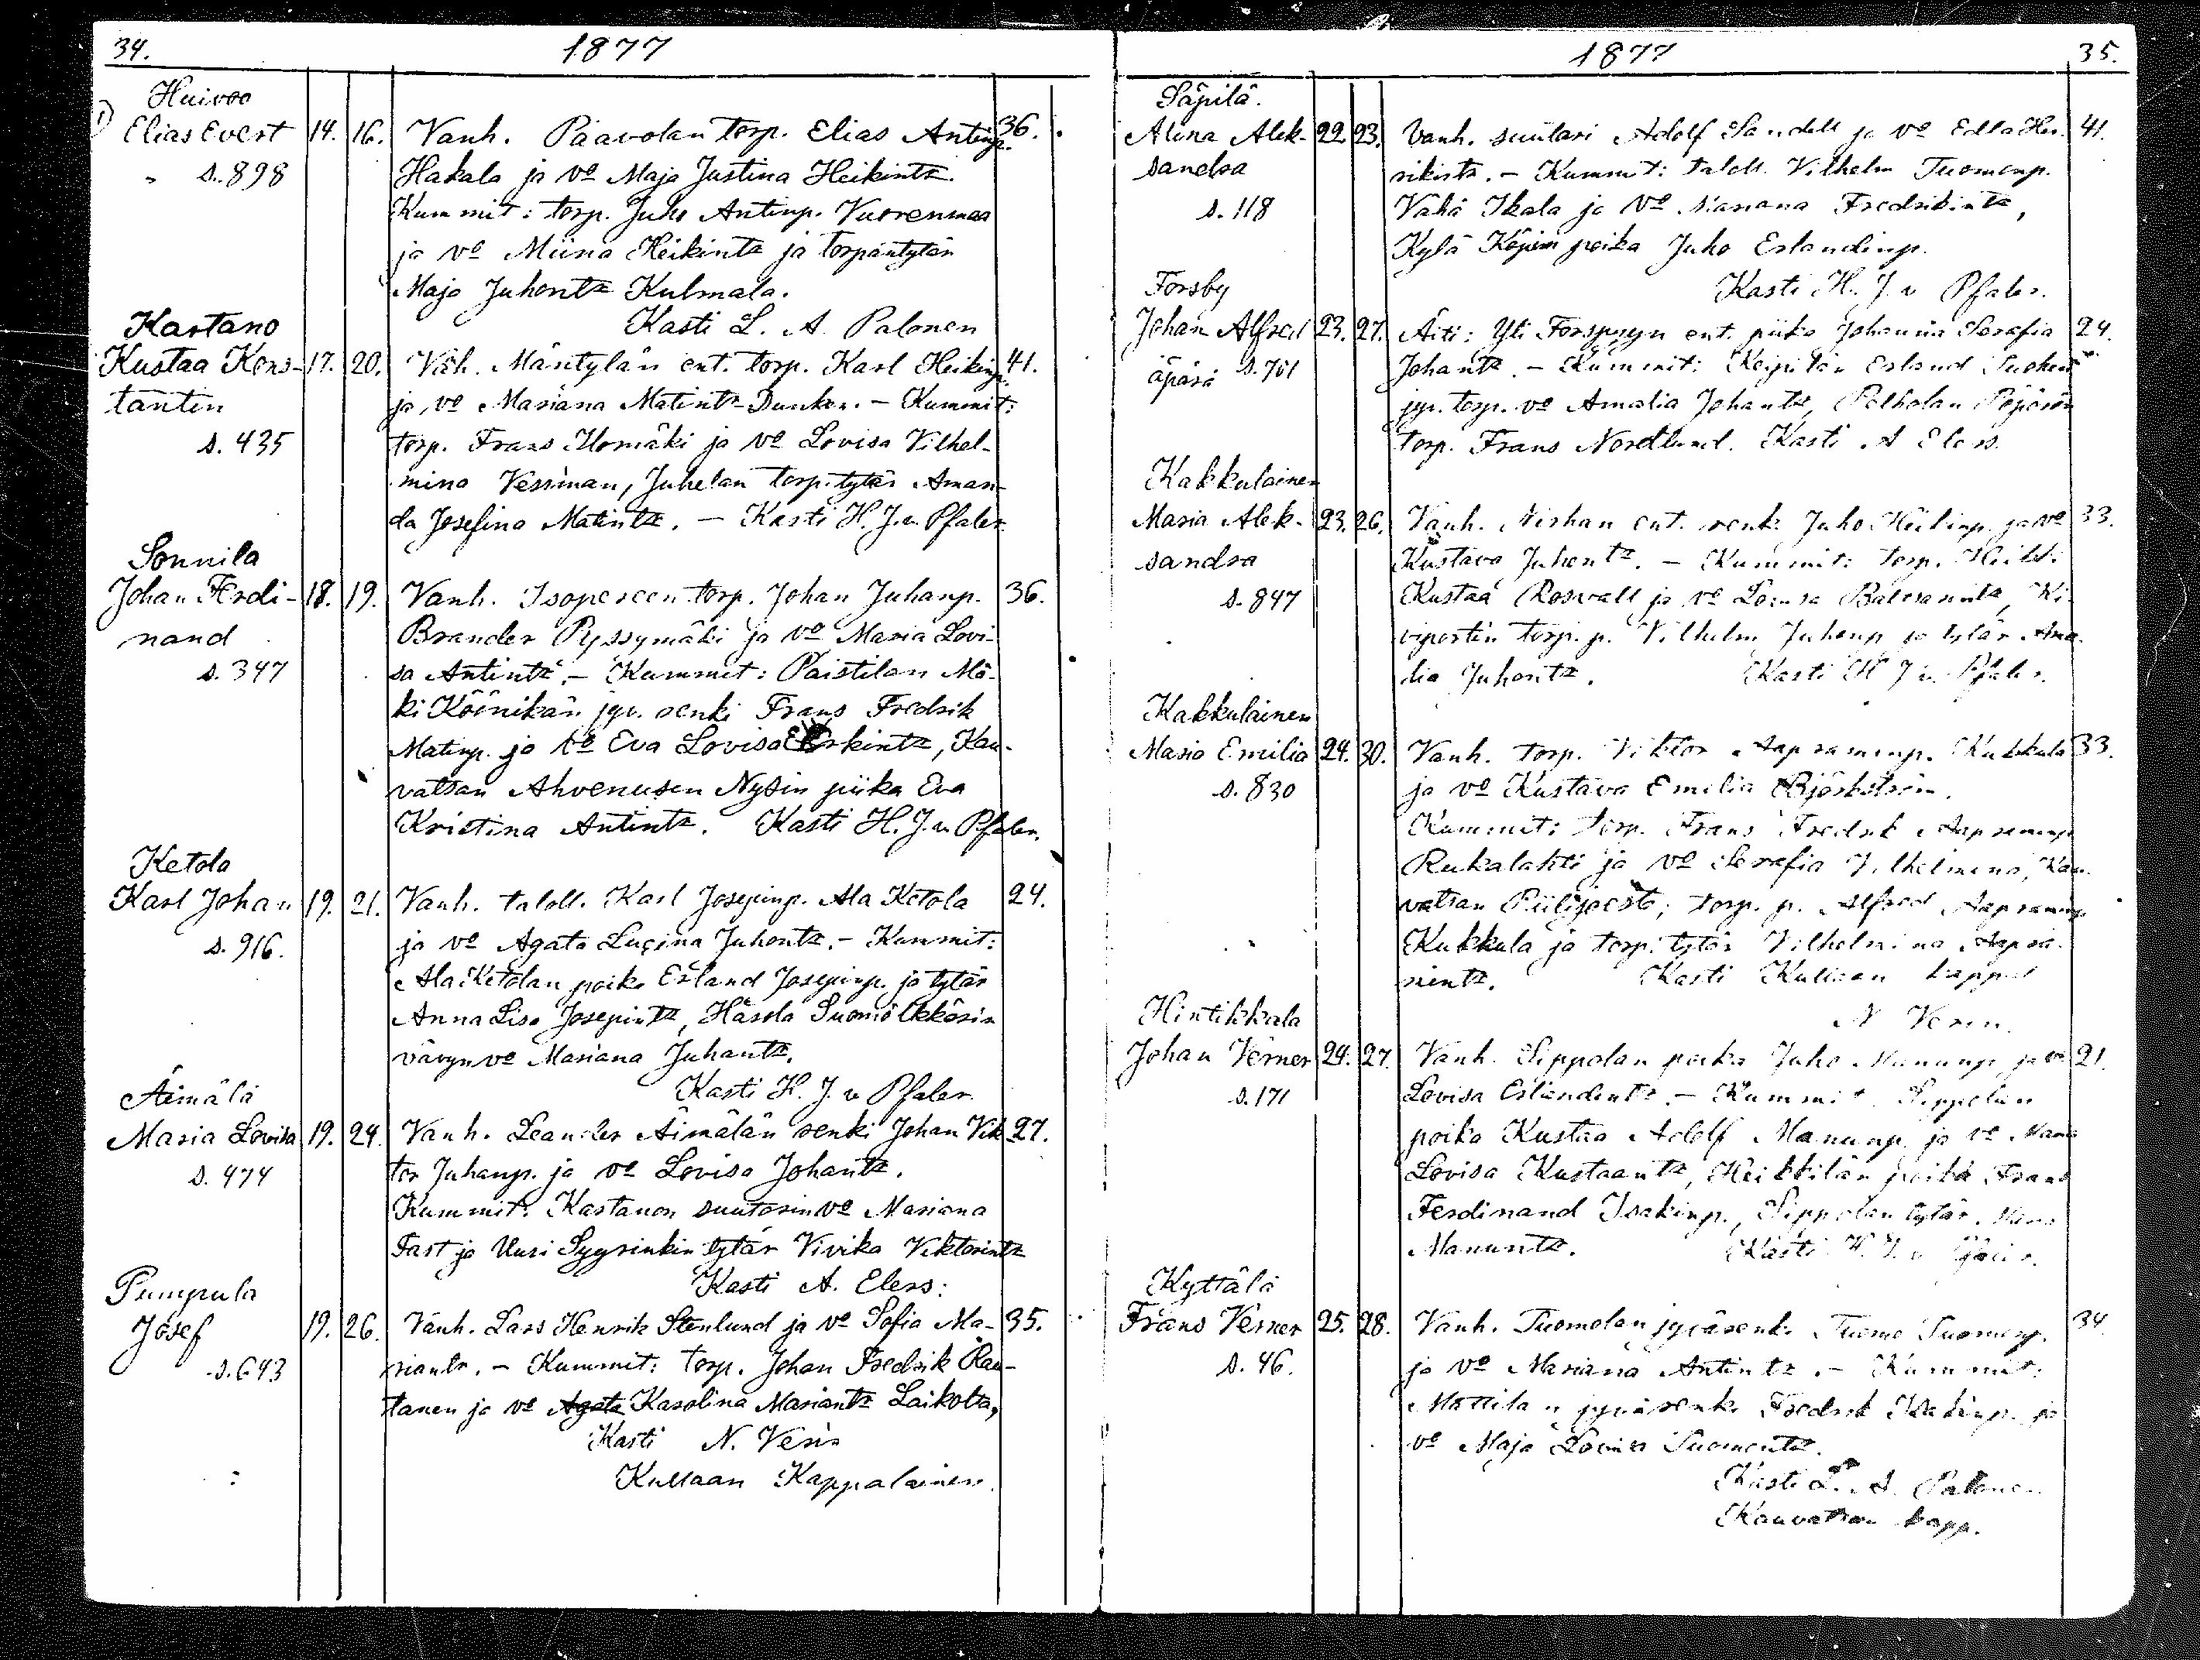 34.
1877
Huivoo
Elias Evert 14. 16. Vanh. Paavolan torp. Elias Antinp. 36.
s. 898 Hakala ja vo Maja Justina Heikintr.
Kummit: torp. Juho Antinp. Vuorenmaa
ja vo Miina Heikintr ja torpantytär
Maja Juhontr Kulmala.
Kasti L. A. Palonen
Kartano
Kustaa Kons- 17. 20. Mäntylän ent. torp. Karl Heikinp. 41.
tantin ja vo Mariana Matintr Dunker. – Kummit:
s. 435 torp. Frans Ilomäki ja vo Lovisa Vilhel-
mina Vessman, Juhelan torp. tytär Aman-
da Josefina Matintr. – Kasti H. J. v. Pfaler.
Sonnila
Johan Ferdi- 18. 19. Vanh. Isopereen torp. Johan Juhanp. 36.
nand Brander Pyssymäki ja vo Maria Lovi-
s. 347 sa Antintr. – Kummit: Paistilan Mä-
ki Köönikän jyv. renki Frans Fredrik
Matinp. ja vo Eva Lovisa Erkintr, Kau-
vatsan Ahvenusen Nysin piika Eva
Kristina Antintr. Kasti H. J. v. Pfaler.
Ketola
Karl Johan 19. 21. Vanh. taloll. Karl Josepinp. Ala Ketola 24.
s. 916. ja vo Agata Lucina Juhontr. – Kummit:
Ala Ketolan poika Erland Josepinp. ja tytär
Anna Lisa Josepintr, Härola Suomi
vävyn vo Mariana Juhantr.
Kasti H. J. v Pfaler.
Äimälä
Maria Lovisa 19. 24. Vanh. Leander Äimälän renki Johan Vik- 27.
s. 474 tor Juhanp. ja vo Lovisa Johantr.
Kummit: Kartanon suutarin vo Mariana
Fast ja Uusi Sygrinkin tytär Vivika Viktorintr
Kasti A. Elers:
Pumpula
Josef 19. 26. Vanh. Lars Henrik Stenlund ja vo Sofia Ma- 35.
s. 643 riantr. – Kummit: torp. Johan Fredrik Rau-
tanen ja vo Agata Karolina Mariantr Laikolta,
Kasti N. Verin
Kullaan Kappalainen.
1877
35.
Säpilä.
Alina Alek- 22. 23. Vanh. suutari Adolf Sandell ja vo Edla Hen- 41.
sandra rikintr. – Kummit: taloll. Vilhelm Tuomenp.
s. 118 Vähä Ikala ja vo Mariana Fredrikintr,
Kylä poika Juho Erlandinp.
Kasti H. J. v Pfaler.
Forsby
Johan Alfred 23. 27. Äiti: Yli Forspyyn ent. piika Johanna Serafia 24.
äpärä s. 701 Johantr. – Kummit: Keipilän Erland
jyv. torp. vo Amalia Johantr,
torp. Frans Nordlund. Kasti A Elers.
Kakkulainen
Maria Alek- 23. 26. Vanh. ent. renki Juho Heikinp. ja vo 33.
sandra Kustava Juhontr. – Kummit: torp.
s. 847 Kustaa Rosvall ja vo Lovisa Ki-
viportin torp. p. Vilhelm Juhonp ja tytär Ama-
lia Juhontr. Kasti H J v. Pfaler.
Kakkulainen
Maria Emilia 24. 30. Vanh. torp. Viktor Aapraminp. Kukkula 33.
s. 830 ja vo Kustava Emilia
Kummit: torp. Frans Fredrik Aapraminp
Rukalahti ja vo Serafia Vilhelmina, Kau-
vatsan Piilijoesta; torp. p. Alfred Aapraminp
Kukkula ja torp. tytär Vilhelmina Aapra-
mintr. Kasti Kullaan kappal
N Verin.
Hintikkala
Johan Verner 24. 27. Vanh. Sippolan poika Juho Manunp. ja vo 21.
s. 171 Lovisa Erlandintr. – Kummit: Sippolan
poika Kustaa Adolf Manunp. ja vo Maria
Lovisa Kustaantr, Heikkilän poika Frans
Ferdinand Isakinp., Sippolan tytär
Manuntr. Kasti H. J. v Pfaler.
Kyttälä
Frans Verner 25. 28. Vanh. Tuomolan jyvärenki Tuomo Tuomenp. 34.
s. 46. ja vo Mariana Antintr. – Kummit:
Mattilan jyvärenki Fredrik Isakinp. ja
vo Maja Lovisa Tuomentr.
Kasti L. A. Palonen
Kauvatsan kapp.